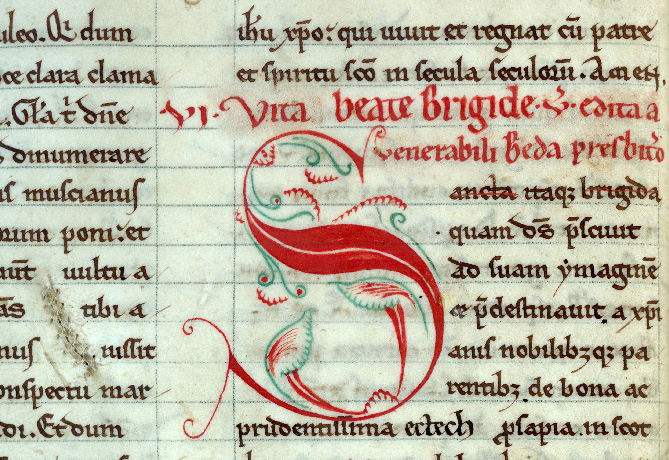 uleo. Q dum
ce clara clama
. Gła t dn̄e
dinumerare
is muscianus
orum poni: et
uultu a
as tibi a
nus iussit
onspectu mar
di. Et dum
ihu xp̄o: qui uiuit et regnat cū patre
et spiritu sc̄o in secula seculorū. Amen.
VI. Vita beate Brigide. V̄. edita a
uenerabili Beda presbit̄o
Sancta itaq; brigida
quam d̄s p̄sciuit
ad suam ymaginē
et p̄destinauit. a xp̄i
anis nobilibꝫqꝫ pa
rentibꝫ de bona ac
prudentissima ectech ꝓsapia. in scot